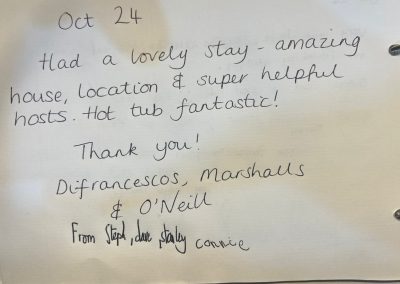 Oct 24
Had a lovely stay - amazing
house, location & super helpful
hosts. Hot tub fantastic!
Thank you!
Difrancescos, Marshalls
& O'Neill
From Steph, dave, stanley connie